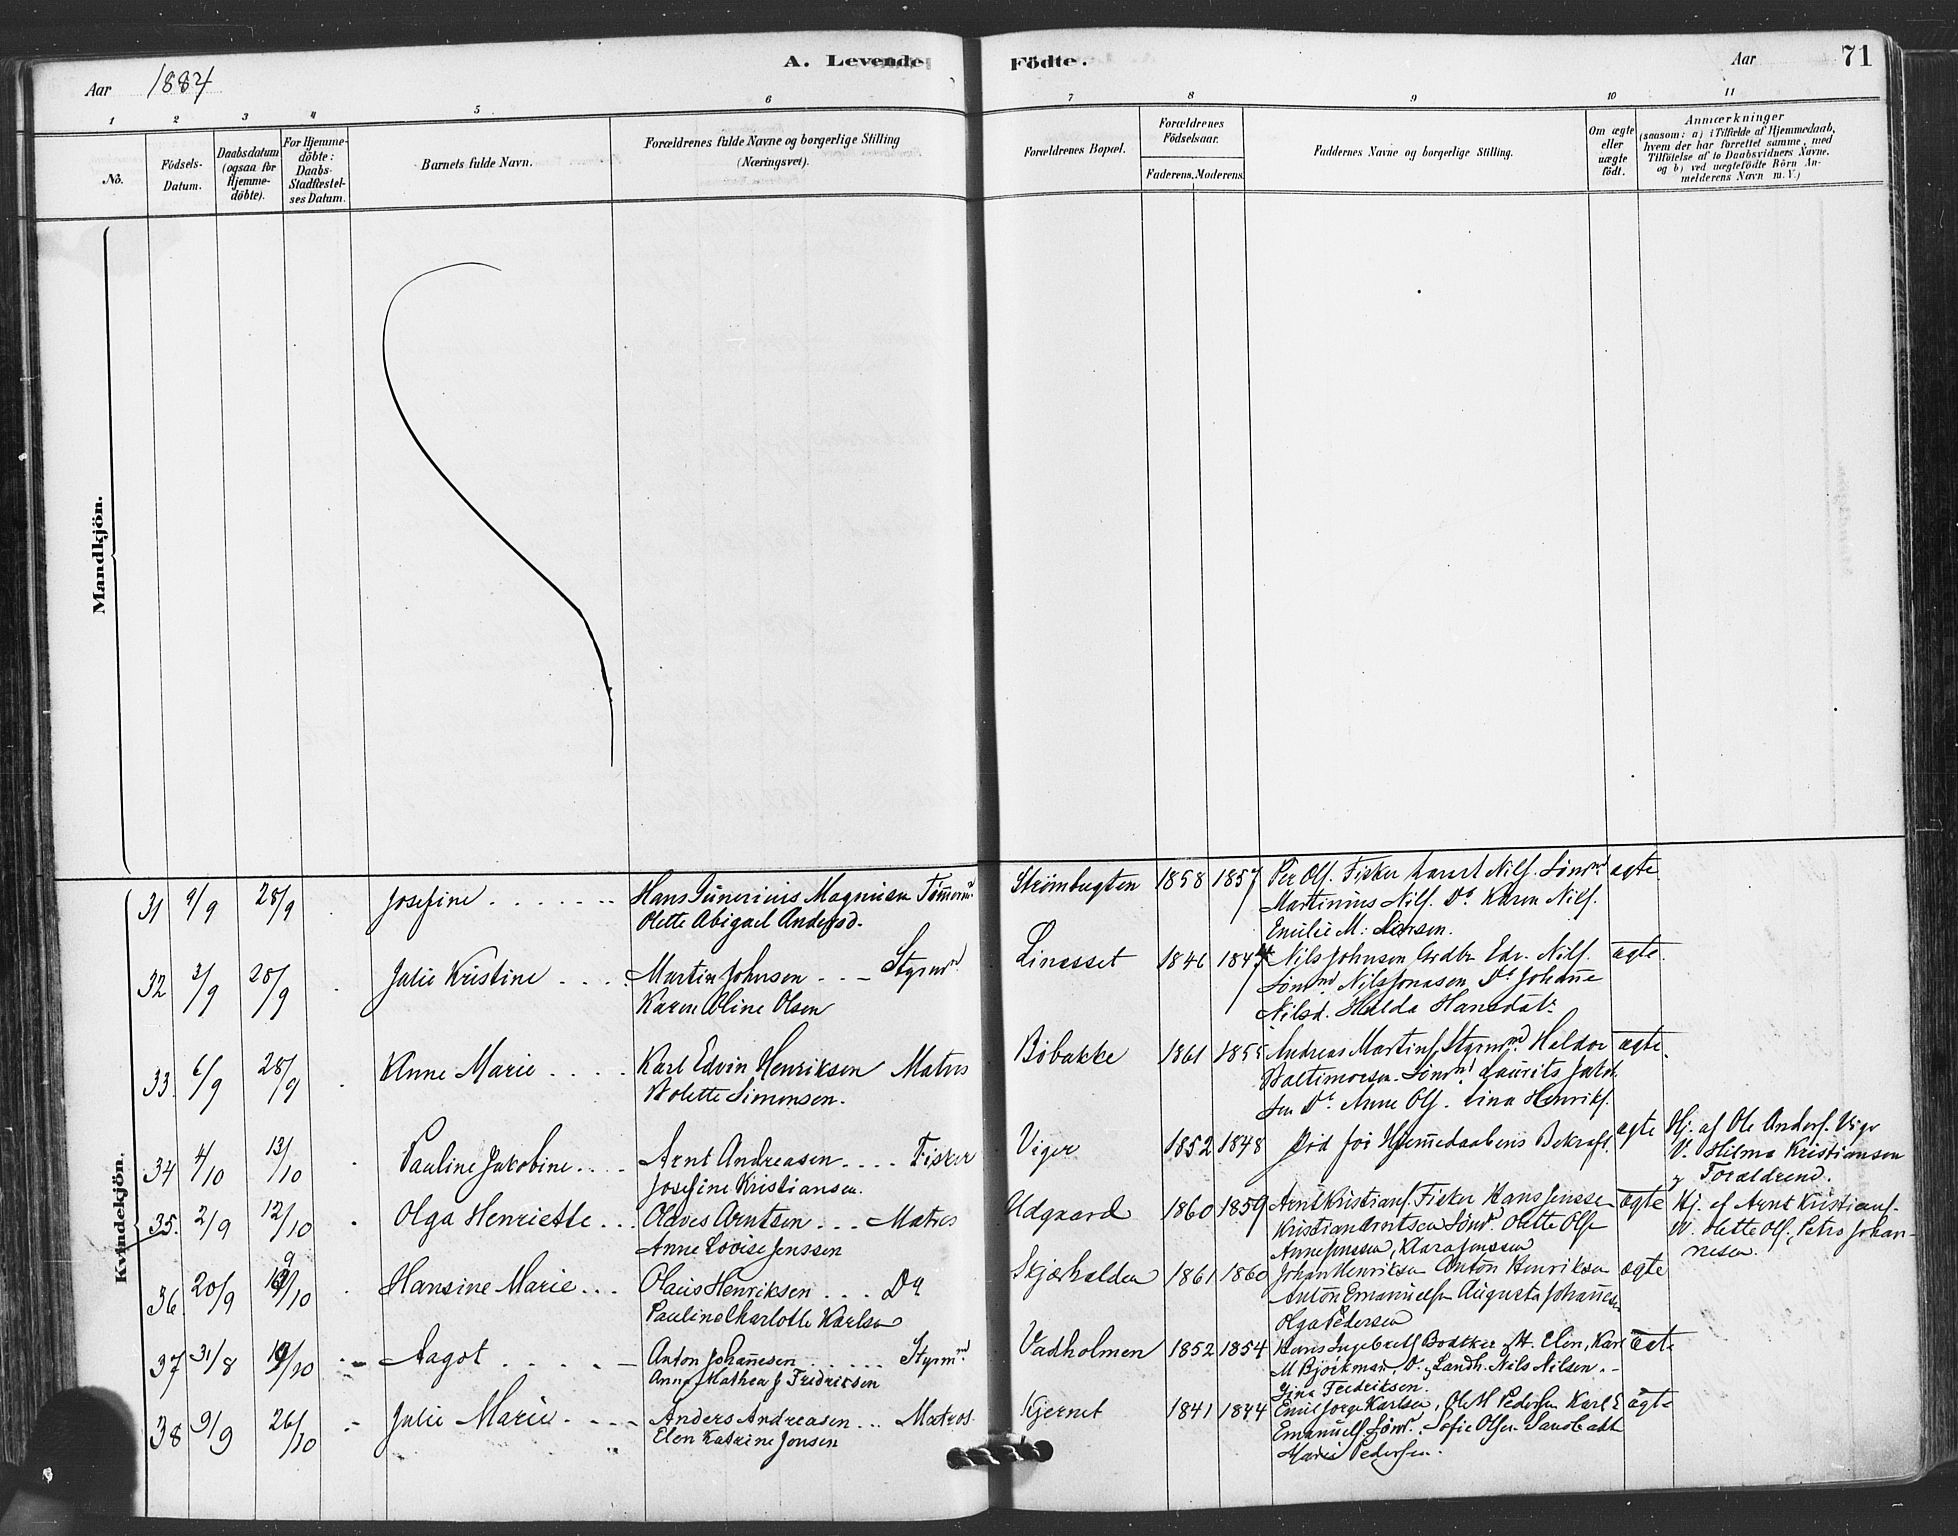 Aar 1884
A. Levende Födte.
Aar 71
1 2 3 4 5 6 7 8 9 10 11
No.
Födsels-Datum.
Daabsdatum (ogsaa for Hjemmedöbte).
For Hjemmedöbte: Daabs-Stadfæstelses Datum.
Barnets fulde Navn.
Forældrenes fulde Navne og borgerlige Stilling
(Næringsvei).
Forældrenes Bopæl.
Forældrenes Födselsaar.
Faderens. Moderens.
Faddernes Navne og borgerlige Stilling.
Om ægte eller uægte födt.
Anmærkninger
(saasom: a) i Tilfælde af Hjemmedaab,
hvem der har forrettet samme, med
Tilföielse af to Daabsvidners Navne.
og b) ved uægtefödte Börn An-
melderens Navn m. V.)
Mandkjön.
Kvindekjön.
31 9/9 28/9 Josefine Hans Sunerius Magnusen
Olette Abigael Andersd.
Strømbugten 1858 1857 Per Ols. Fisker Nils. Sømd ægte
Martinius Nils. Do Karen Nils.
Emilie M: Larsen.
32 3/9 28/9 Julie Kristine Martin Johnsen Styrmd
Karen Oline Olsen
1846 Nils Johnsen Edv. Nils. ægte
Sømmd Nils Jonasen Do Johanne
Nilsd. Hulda Hansdat.
33 6/9 28/9 Anne Marie Karl Edvin Henriksen Matros
Bolette Simonsen.
Bøbakke 1861 1855 Andreas Martins. Styrmd. Haldor ægte.
Baltimorsen. Sømd. Laurits Jakob
sen Do. Anne Ols. Lina Henriks.
34 4/10 13/10 Pauline Jakobine Arnt Andreasen Fisker
Josefine Kristiansen.
Viger 1852 1848 Død før Hjemmedaabens Bekræft. ægte Hj. af Ole Anders. Viger
V. Hilma Kristiansen
Forældrene.
35. 2/9 12/10 Olga Henriette Olaves Arntsen Matros
Anne Lovise Jenssen
Udgaard 1860 1859 Arnt Kristians. Fisker Hans Jenssen ægte Hj. af Arnt Kristians.
Kristian Arntsen Sømd. Olette Olsen V. Olette Ols., Petra Johan-
Anne Jenssen, Klara Jenssen nesen.
36 20/9 /10 Hansine Marie Olaus Henriksen Do
Pauline Charlotte Karlsen
Skjærhalden 1861 1860 Johan Henriksen Anton Henriksen ægte
Anton Emanuelsen Augusta Johannesen
Olga Pedersen
37 31/8 /10 Aagot Anton Johannesen Styrmd
Anne Mathea J Fredriksen
Vadholmen 1852 1854 Hans Ingebretsen Bødtker Elen, Karl ægte
M Bjørkman, Nils Nilsen.
Gina Fredriksen.
38 9/9 26/10 Julie Marie Anders Andreasen Matros
Elen Katrine Jonsen
Kjernet 1841 1844 Emil Jørge Karlsen, Ole M Pedersen Karl E ægte
Emanuels. Sømd. Sofie Olsen
Marie Pedersen.